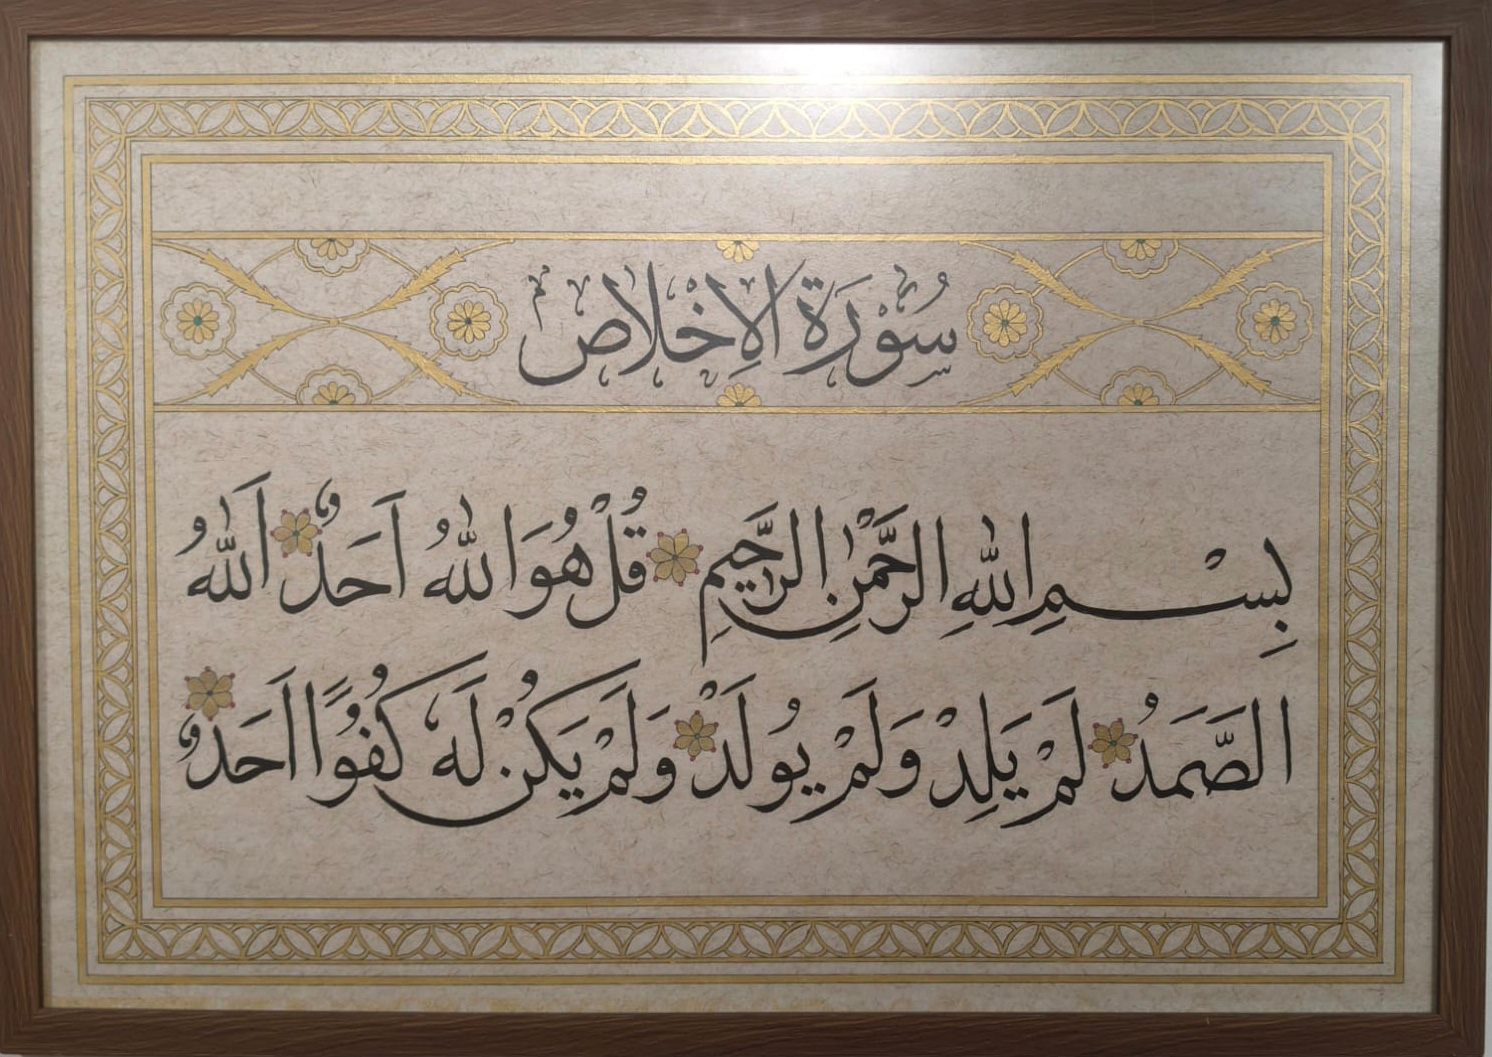 سُوْرَةُ الْاِخْلَاصِ
بِسْمِ اللّٰهِ الرَّحْمٰنِ الرَّحِيمِ قُلْ هُوَ اللّٰهُ اَحَدٌ اَللّٰهُ
الصَّمَدُ لَمْ يَلِدْ وَلَمْ يُولَدْ وَلَمْ يَكُنْ لَهُ كُفُوًا اَحَدٌ